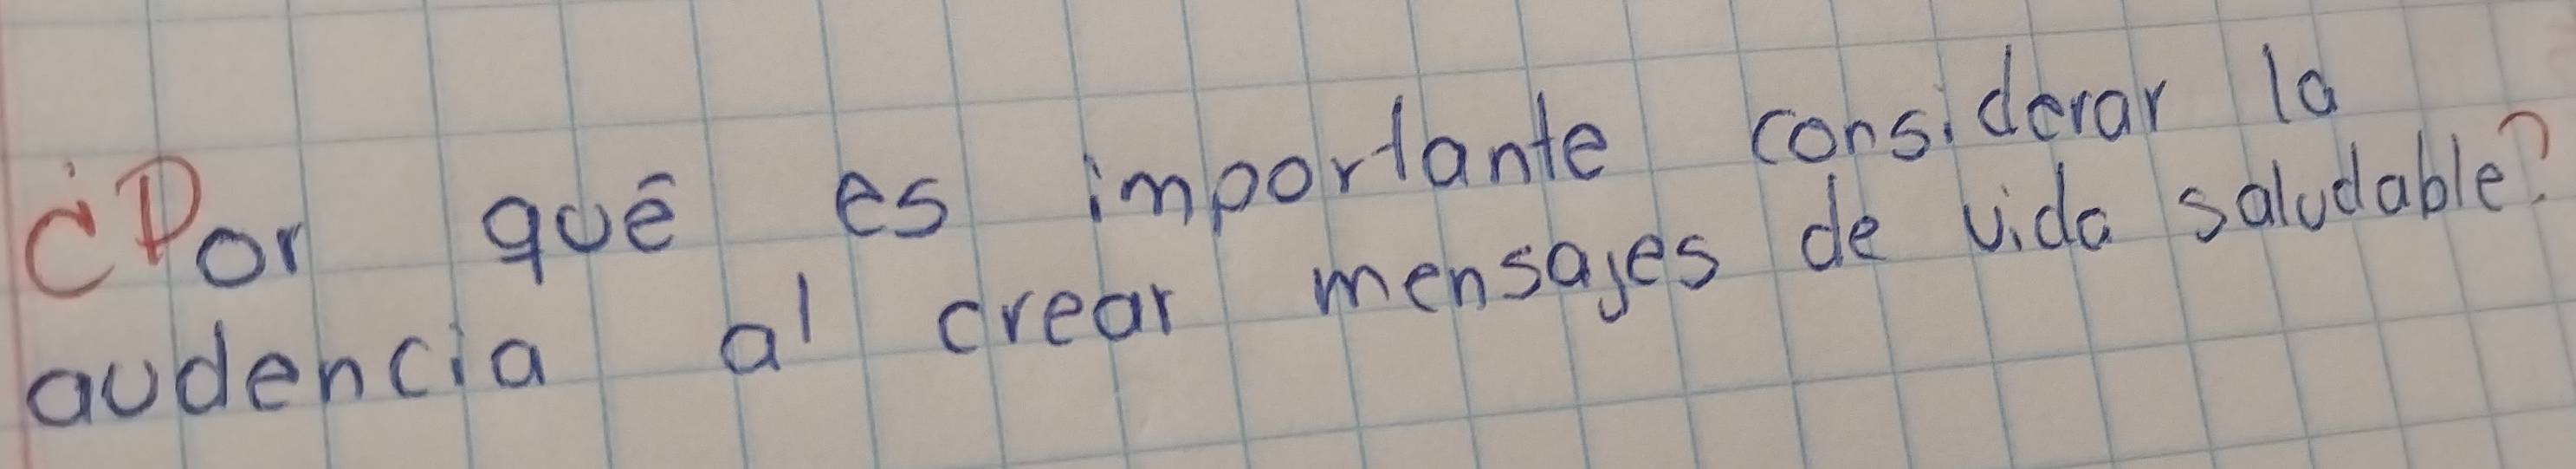 ¿Por qué es importante considerar la
audencia al crear mensajes de vida saludable?